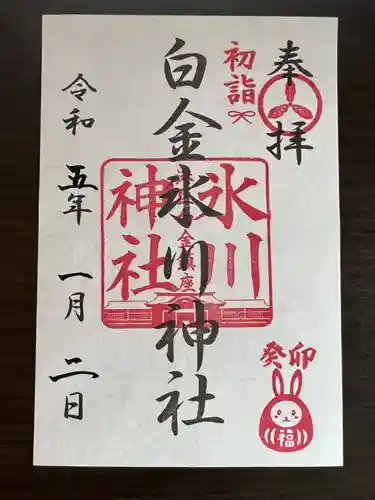 奉拝
初詣
白金氷川神社
氷川
神社
金鎮座
令和五年一月二日
癸卯
福